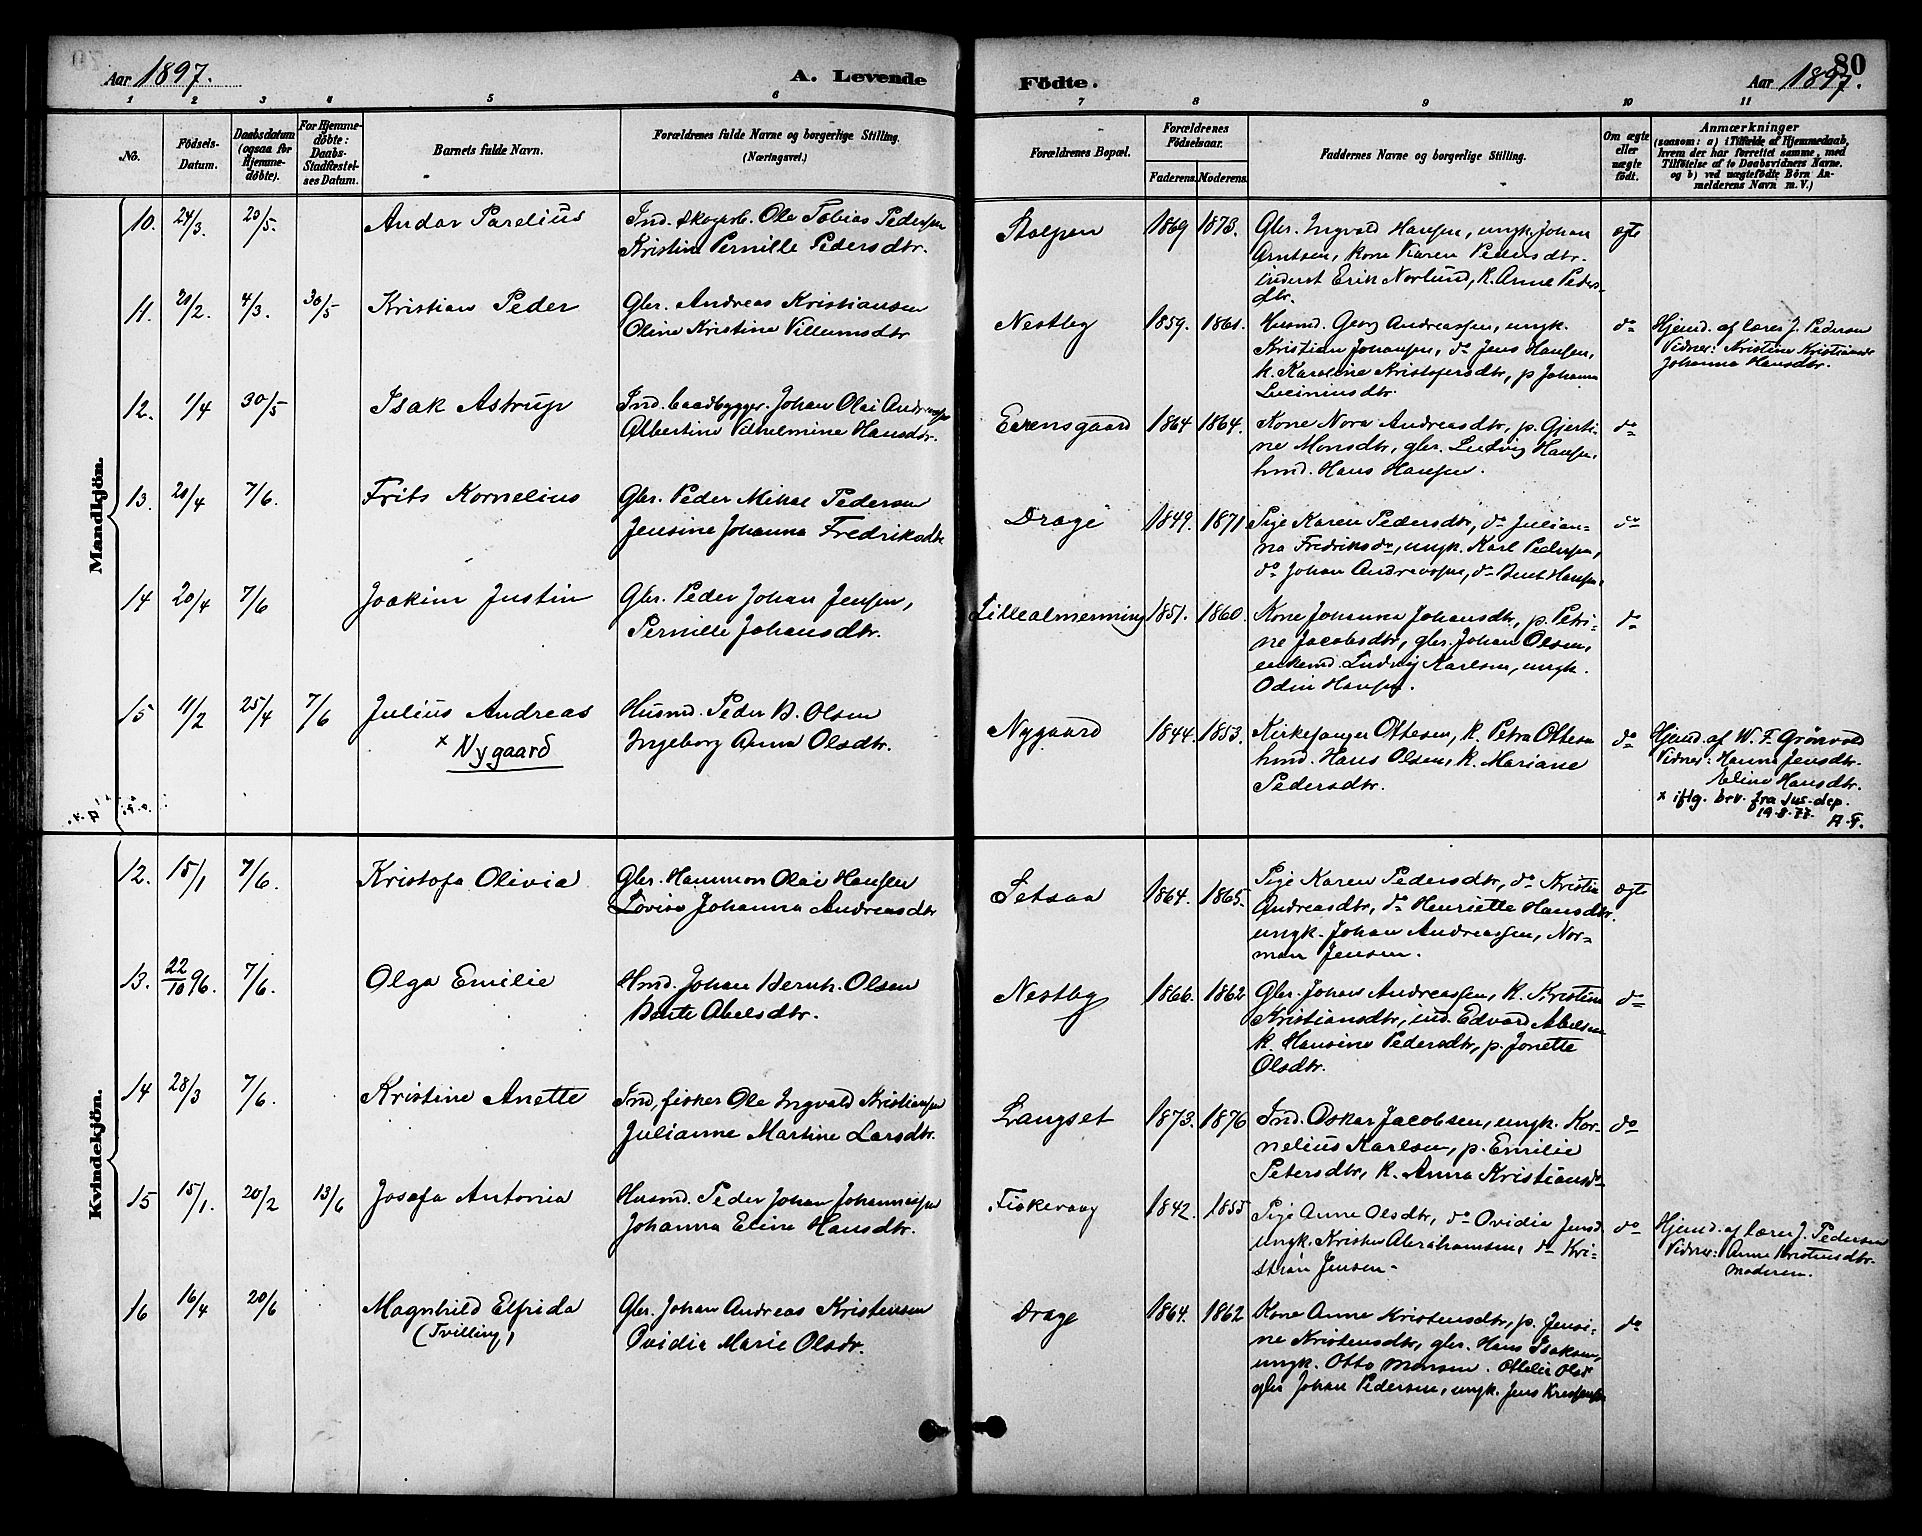 Aar 1897. A. Levende Födte. Aar 1897. 80
1 2 3 4 5 6 7 8 9 10 11
No.
Födsels-
Datum.
Daabsdatum
(ogsaa for
Hjemme-
döbte).
For Hjemme-
döbte:
Daabs-
Stadfæstel-
ses Datum.
Barnets fulde Navn.
Forældrenes fulde Navne og borgerlige Stilling.
(Næringsvei.)
Forældrenes Bopæl.
Forældrenes
Födselsaar.
Faderens. Moderens.
Faddernes Navne og borgerlige Stilling.
Om ægte
eller
uægte
födt.
Anmærkninger
(saasom: a) i Tilfælde af Hjemmedaab,
hvem der har forrettet samme, med
Tilföielse af to Daabsvidners Navne,
og b) ved uægtefödte Börn An-
melderens Navn m. V.)
Mandkjön.
10. 24/3. 20/5. Andor Parelius
Ind. skogarb. Ole Tobias Pedersen
Kristine Pernille Pedersdtr.
Stolpen 1869 1873.
Gbr. Ingvald Hansen, ungk. Johan
Arntsen, kone Karen Pedersdtr.
inderst Erik Norlund, k. Anne Peders-
dtr.
ægte
11. 20/2. 4/3. 30/5 Kristian Peder
Gbr. Andreas Kristiansen
Oline Kristine Villumsdtr
Nestby 1859. 1861.
Husmd. Georg Andreassen, ungk.
Kristian Johansen, do Jens Hansen,
k. Karoline Kristofersdtr, p. Johanna
Luciniusdtr.
do
Hjemd. af lærer J. Pedersen
Vidner: Kristine Kristiansdr
Johanna Hansdtr.
12. 1/4 30/5 Isak Astrup
Ind. baadbygger. Johan Olai Andreassen
Albertine Vilhelmine Hansdtr.
Evensgaard 1864 1864.
Kone Nora Andreasdtr, p. Gjerti-
ne Monsdtr, gbr. Ludvig Hansen,
hmd. Hans Hansen.
do
13. 20/4 7/6. Frits Kornelius
Gbr. Peder Mikal Pedersen
Jensine Johanna Fredriksdtr
Drage 1849. 1871
Pige Karen Pedersdtr, do Julian-
na Fredriksdr, ungk. Karl Pedersen,
do Johan Andreassen, do Bent Hansen.
do
14 20/4 7/6 Joakim Justin
Gbr. Peder Johan Jensen,
Pernille Johansdtr.
Lillealmenning 1851. 1860.
Kone Johanna Johansdtr, p. Petri-
ne Jacobsdtr, gbr. Johan Olsen,
enkemd. Ludvig Karlsen, ungk.
Odin Hansen.
do
15 11/2 25/4 7/6 Julius Andreas
x Nygaard
Husmd. Peder B. Olsen
Ingeborg Anna Olsdtr.
Nygaard 1844. 1853.
Kirkesanger Ottesen, k. Petra Ottesen
hmd. Hans Olsen, k. Mariane
Pedersdtr.
do
Hjemd. af W. F. Grönvold
Vidner: Hanna Jensdtr.
Eline Hansdtr.
x iflg. brev. fra Jus.dep.
19.8.77. A.F.
Kvindekjön.
12. 15/1 7/6. Kristofa Olivia
Gbr. Hammon Olai Hansen
Lovise Johanna Andreasdtr
Setsaa 1864. 1865.
Pige Karen Pedersdtr, do Kristin
Andreasdtr, do Henriette Hansdtr.
ungk. Johan Andreassen, Nor-
man Jensen.
ægte
13. 22/10 96. 7/6. Olga Emilie
Hmd. Johan Bernh. Olsen
Bente Abelsdtr.
Nestby 1866. 1862
Gbr. Johan Andreassen, k. Kristine
Kristiansdtr, ind. Edvard Abelsen
k. Hansine Pedersdtr, p. Jonette
Olsdtr.
do
14 28/3 7/6. Kristine Anette
Ind, fisker Ole Ingvald Kristiansen
Julianne Martine Larsdtr.
Langset 1873. 1876
Ind. Oskar Jacobsen, ungk. Kor-
nelius Karlsen, p. Emilie
Petersdtr, k. Anna Kristiansdr
do
15 15/1. 20/2 13/6 Josefa Antonia
Husmd. Peder Johan Johannessen
Johanna Eline Hansdtr.
Fiskevaag 1842. 1855
Pige Anne Olsdtr, do Ovidia Jensd.
ungk. Kristen Abrahamsen, do Kri-
stian Jensen.
do
Hjemd. af lærer J. Pedersen
Vidner: Anne Kristensdtr.
moderen.
16 16/4 20/6 Magnhild Elfrida
(Tvilling)
Gbr. Johan Andreas Kristensen
Ovidia Marie Olsdr.
Drage 1864. 1862
Kone Anne Kristensdtr, p. Jensi-
ne Kristensdtr, gbr. Hans Isaksen,
ungk. Otto Monsen. Ottelie Olsd
gbr Johan Pedersen, ungk. Jens Kristensen
do